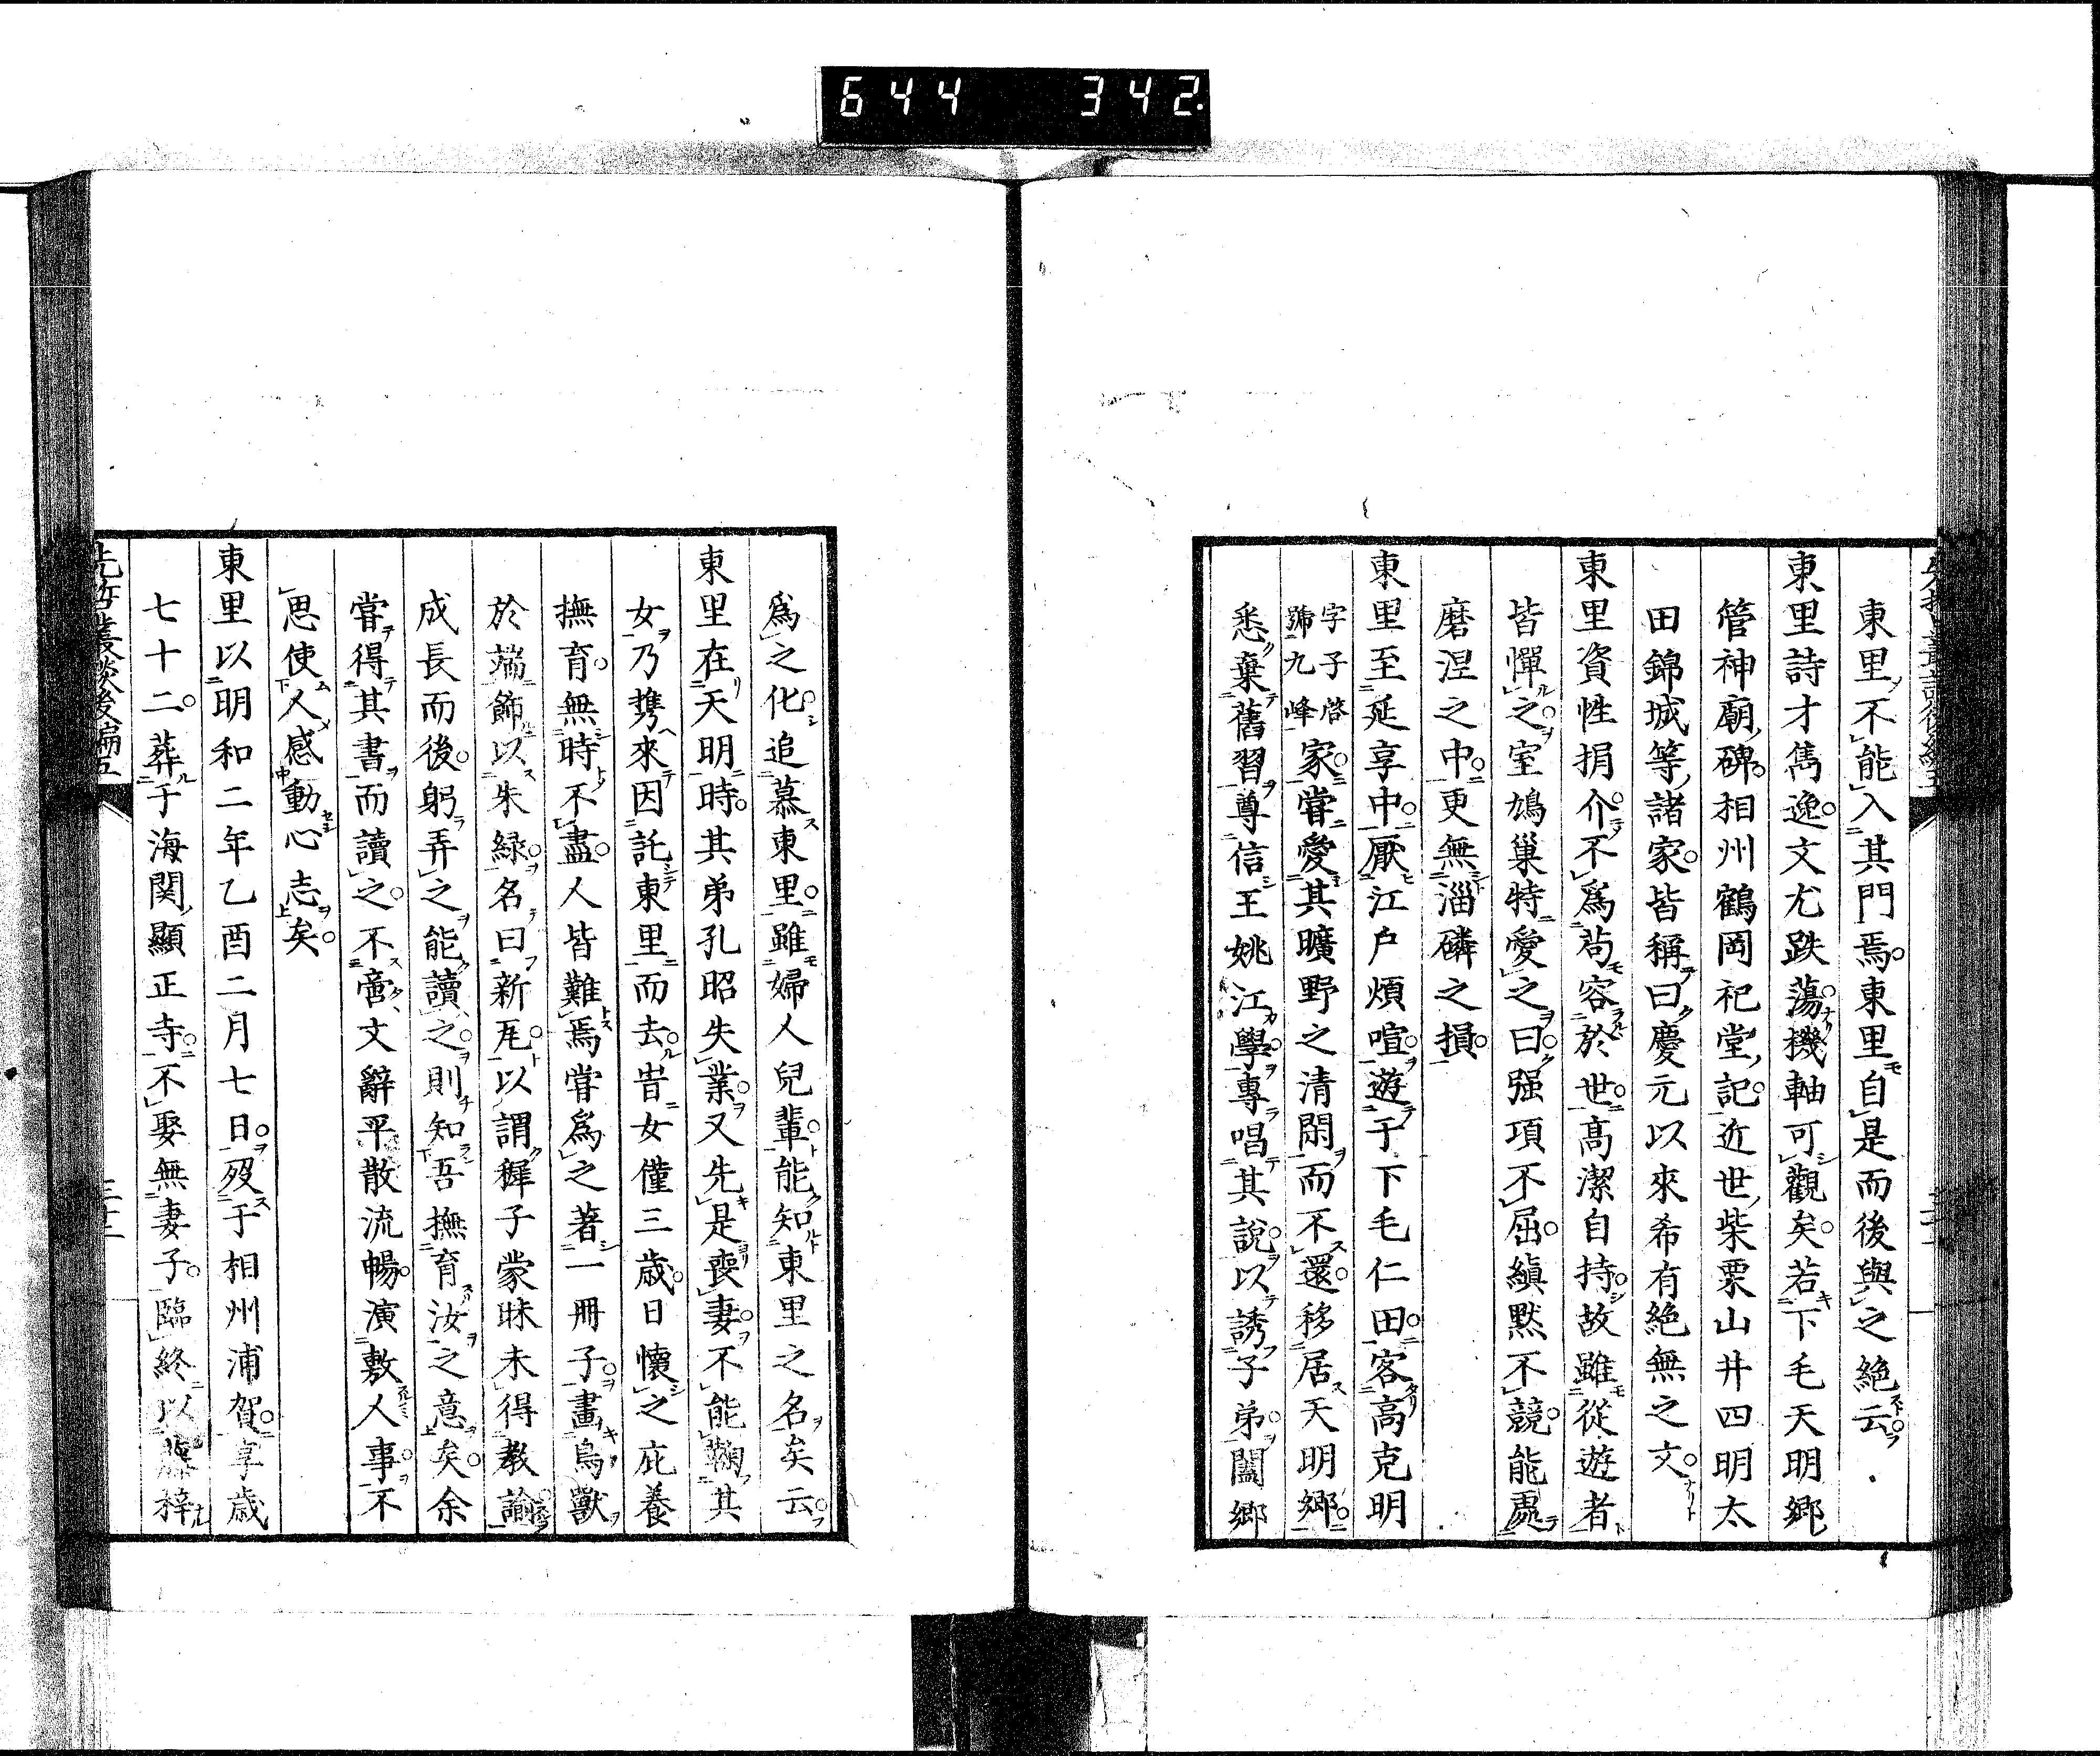 644 342.
東里不能入其門焉東里自是而後與之絶云
東里詩才雋逸文尤跌蕩機軸可觀矣若下毛天明郷
管神廟碑相州鶴岡祀堂記近世柴栗山井四明太
田錦城等諸家皆稱曰慶元以來希有絶無之文
東里資性狷介不爲苟容於世高潔自持故雖從遊者
皆憚之室鳩巢特愛之曰强項不屈縝默不競能處
磨涅之中更無淄磷之損
東里至延享中厭江戸煩喧遊于下毛仁田客高克明
字子啓
號九峰
家嘗愛其曠野之清閑而不還移居天明郷
悉棄舊習尊信王姚江學專唱其說以誘子弟闔郷
爲之化追慕東里雖婦人兒輩能知東里之名矣云
東里在天明時其弟孔昭失業又先是喪妻不能鞠其
女乃携來因託東里而去旹女僅三歲日懷之庇養
撫育無時不盡人皆難焉嘗爲之著一冊子畫鳥獸
於端飾以朱緑名曰新瓦以謂穉子蒙昧未得教諭
成長而後躬弄之能讀之則知吾撫育汝之意矣余
嘗得其書而讀之不啻文辭平散流暢演敷人事不
思使人感動心志矣
東里以明和二年乙酉二月七日歿于相州浦賀享歲
七十二葬于海関顯正寺不娶無妻子臨終以藤梓
先哲叢談後編五